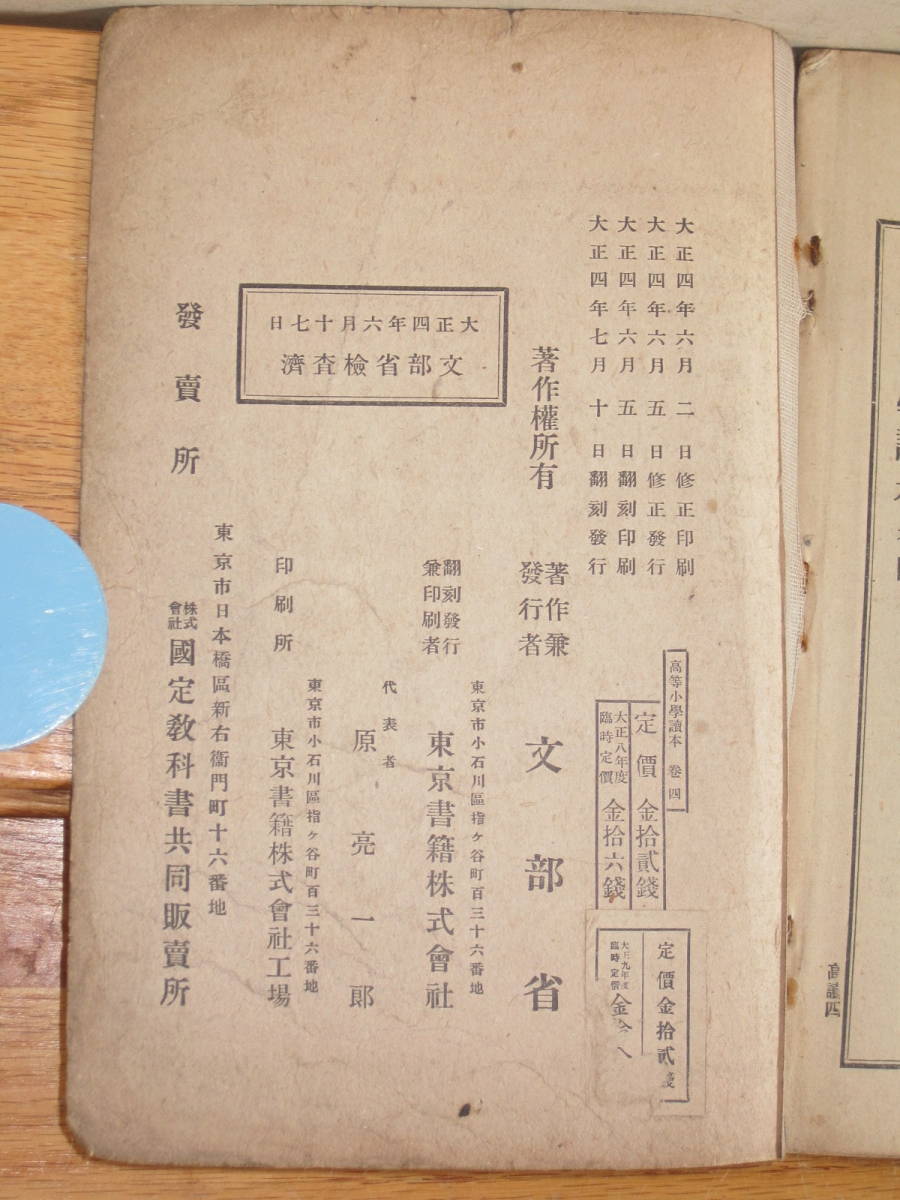 大正四年六月二日修正印刷
大正四年六月五日修正發行
大正四年六月五日翻刻印刷
大正四年七月十日翻刻發行
高等小學讀本 卷四
定價 金拾貳錢
大正八年度
臨時定價 金拾六錢
定價金拾貳錢
臨時定價
著作權所有
著作兼
發行者
文部省
翻刻發行
兼印刷者
東京市小石川區指ヶ谷町百三十六番地
東京書籍株式會社
代表者
原亮一郞
大正四年六月十七日
文部省檢査濟
印刷所
東京市小石川區指ヶ谷町百三十六番地
東京書籍株式會社工場
發賣所
東京市日本橋區新右衞門町十六番地
株式
會社
國定敎科書共同販賣所
高讀四